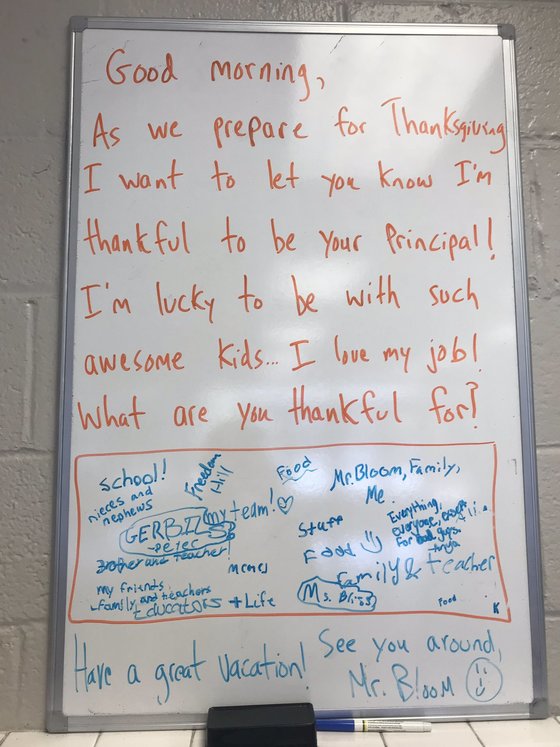 Good morning,
As we prepare for Thanksgiving
I want to let you know I'm
thankful to be your Principal!
I'm lucky to be with such
awesome kids... I love my job!
What are you thankful for?
school!
nieces and
nephews
Freedom
Hill
Food
Mr. Bloom, Family,
Me
my team!
GERBIL
Stuff
Everything,
everyone, except
For bad guys.
Food
and teacher!
memes
Family & teacher
my friends
family and teachers
Educators + Life
Ms.
Food
K
Have a great vacation!
See you around,
Mr. Bloom